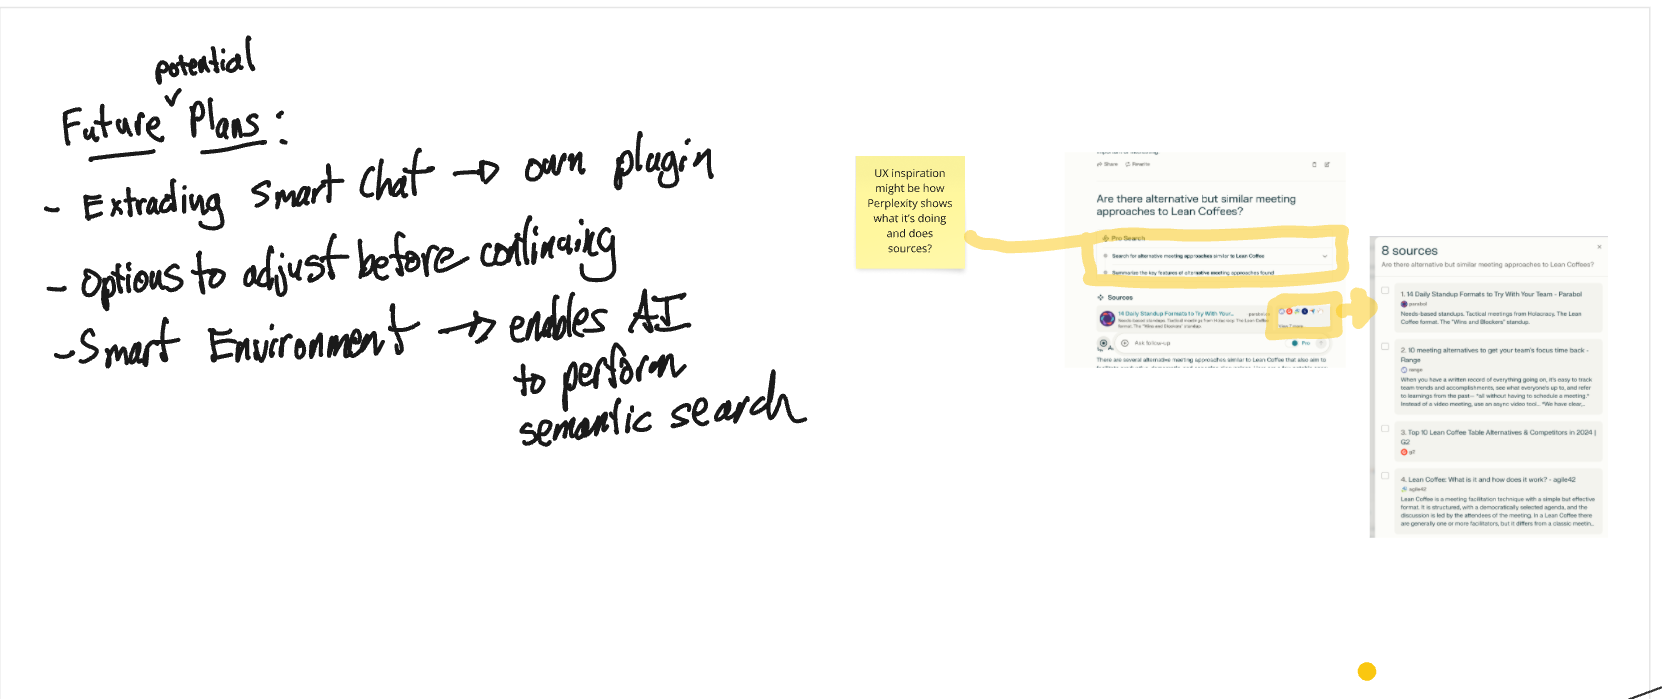 potential
Future Plans:
- Extrading Smart Chat → own plugin
- Options to adjust before continuing
- Smart Environment → enables AI
to perform
semantic search
UX inspiration
might be how
Perplexity shows
what it's doing
and does
sources?
Share Rewrite
Are there alternative but similar meeting
approaches to Lean Coffees?
Pro Search
Search for alternative meeting approaches similar to Lean Coffee
Summarize the key features of alternative meeting approaches found
Sources
14 Daily Standup Formats to Try With Your...
Needs-based standups. Tactical meetings from Holacracy. The Lean Coffee
format. The "Wins and Blockers" standup.
View 7 more
Ask follow-up
Pro
There are several alternative meeting approaches similar to Lean Coffee that also aim to
8 sources
Are there alternative but similar meeting approaches to Lean Coffees?
1. 14 Daily Standup Formats to Try With Your Team - Parabol
parabol
Needs-based standups. Tactical meetings from Holacracy. The Lean
Coffee format. The "Wins and Blockers" standup.
2. 10 meeting alternatives to get your team's focus time back -
Range
range
When you have a written record of everything going on, it's easy to track
team trends and accomplishments, see what everyone's up to, and refer
to learnings from the past— *all without having to schedule a meeting.*
Instead of a video meeting, use an async video tool... "We have clear...
3. Top 10 Lean Coffee Table Alternatives & Competitors in 2024 |
G2
g2
4. Lean Coffee: What is it and how does it work? - agile42
agile42
Lean Coffee is a meeting facilitation technique with a simple but effective
format. It is structured, with a democratically selected agenda, and the
discussion is led by the attendees of the meeting. In a Lean Coffee there
are generally one or more facilitators, but it differs from a classic meetin...